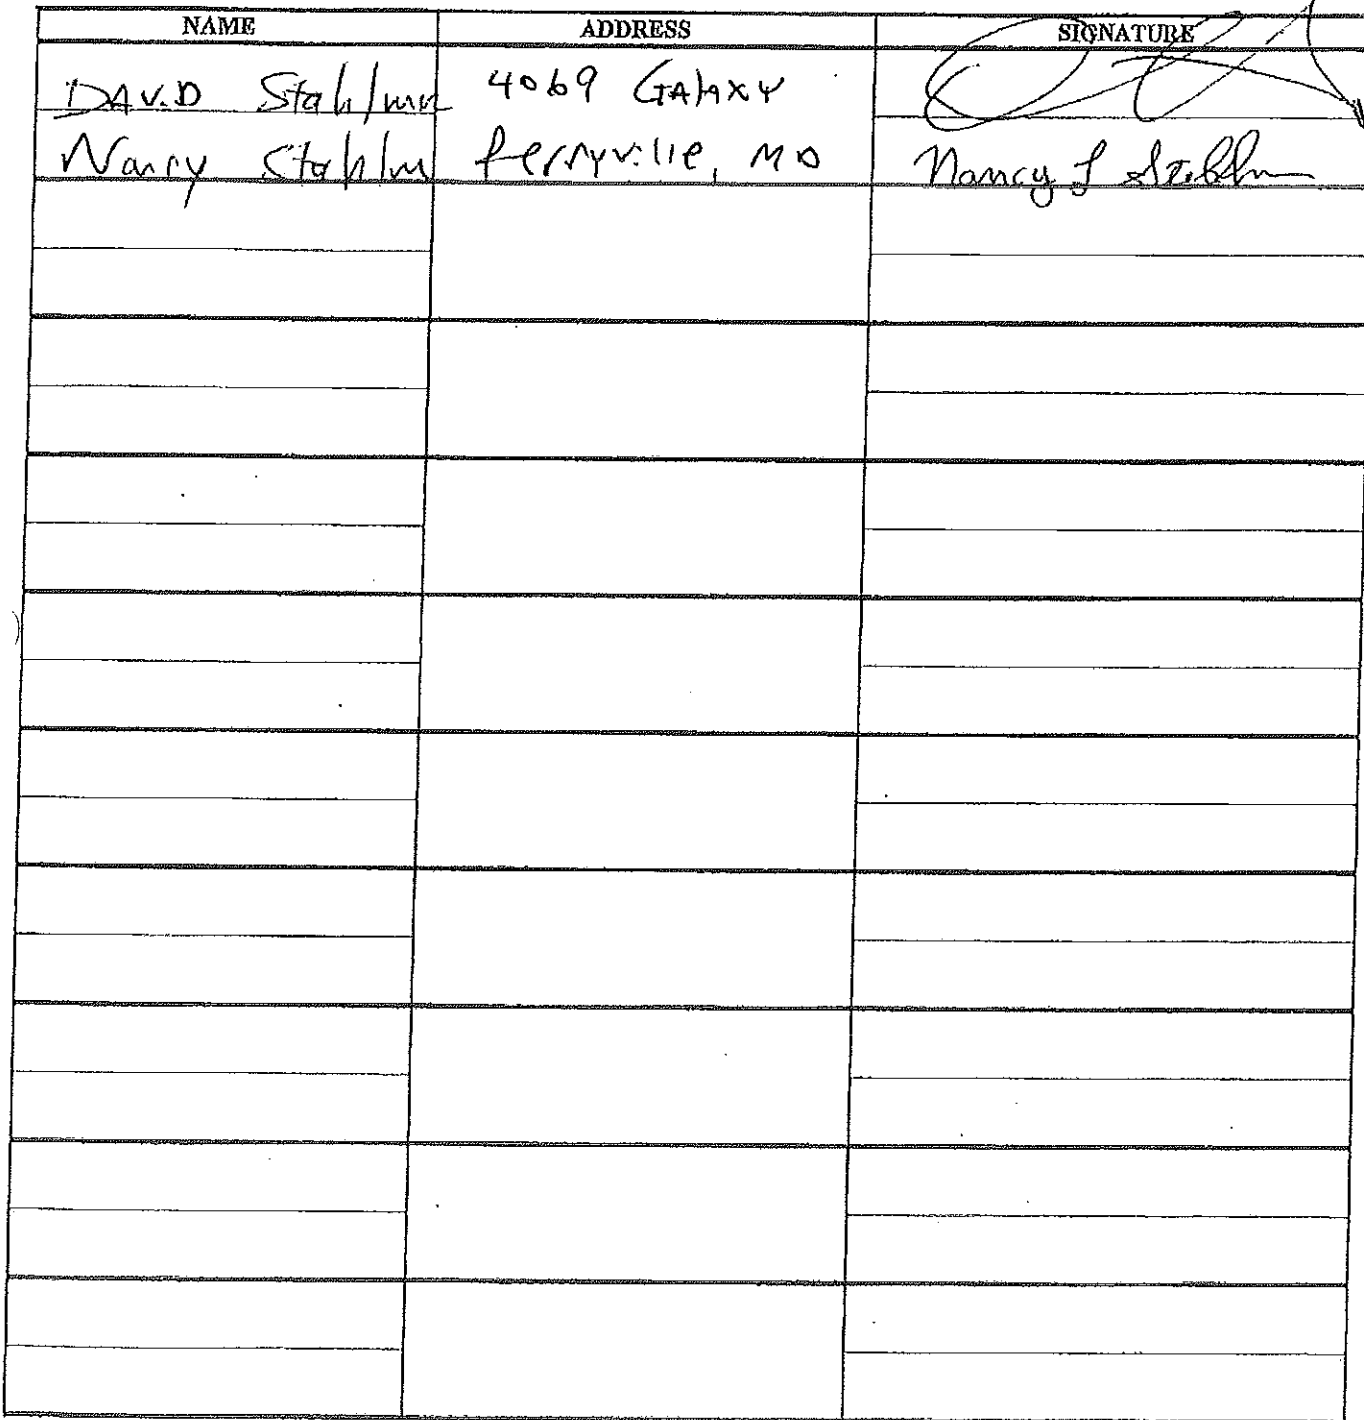 NAME ADDRESS SIGNATURE
DAViD Stahlmn 4069 GALAXY
Nancy Stahlm Perryville, MD Nancy J Stahlm